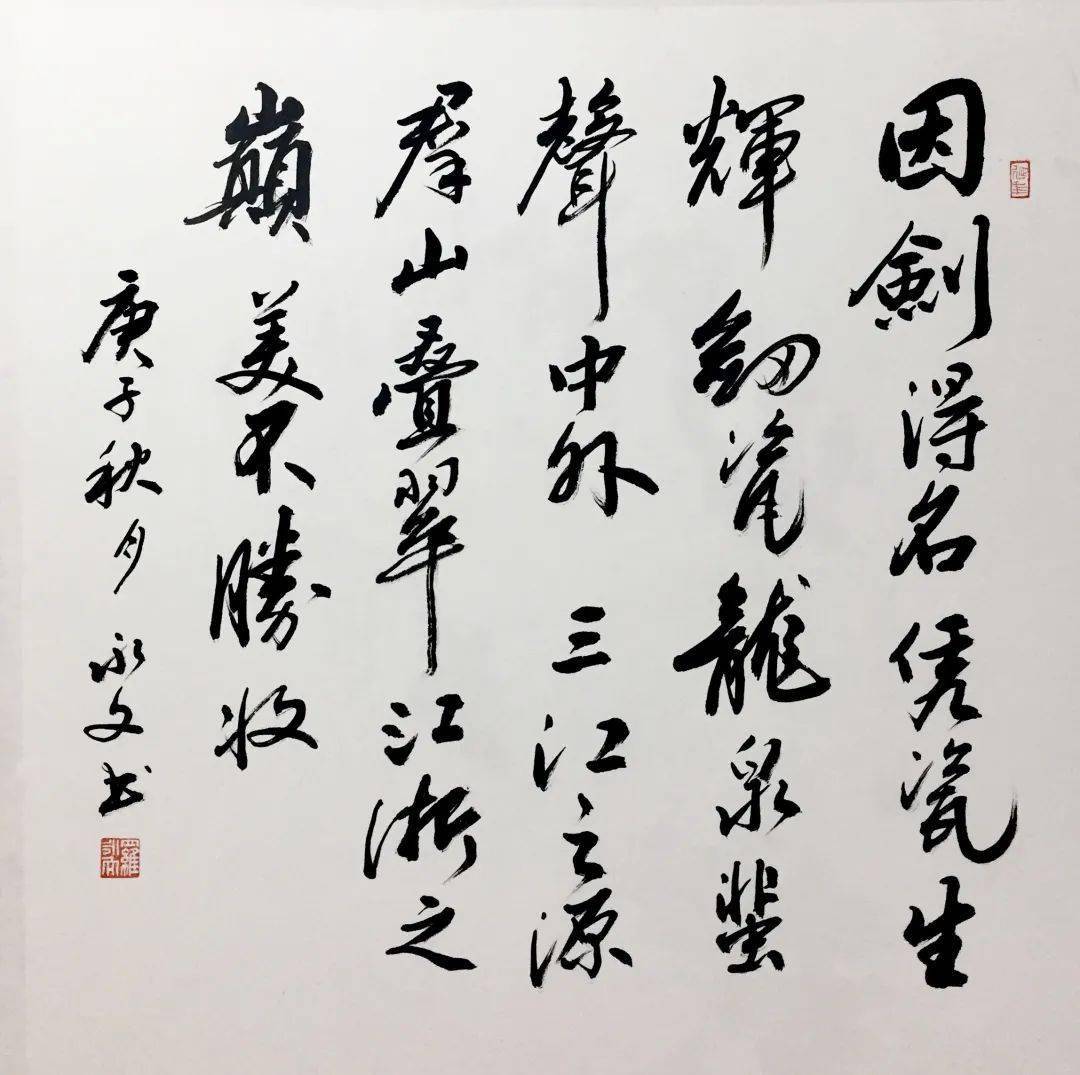 因劍得名凭瓷生
輝劒瓷龍泉蜚
聲中外三江之源
羣山叠翠江浙之
巔美不勝收
庚子秋月永文书
羅永文